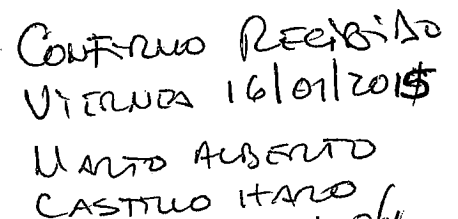 CONFIRMO RECIBIDO
VIERNES 16/01/2015
MARIO ALBERTO
CASTILLO HARO